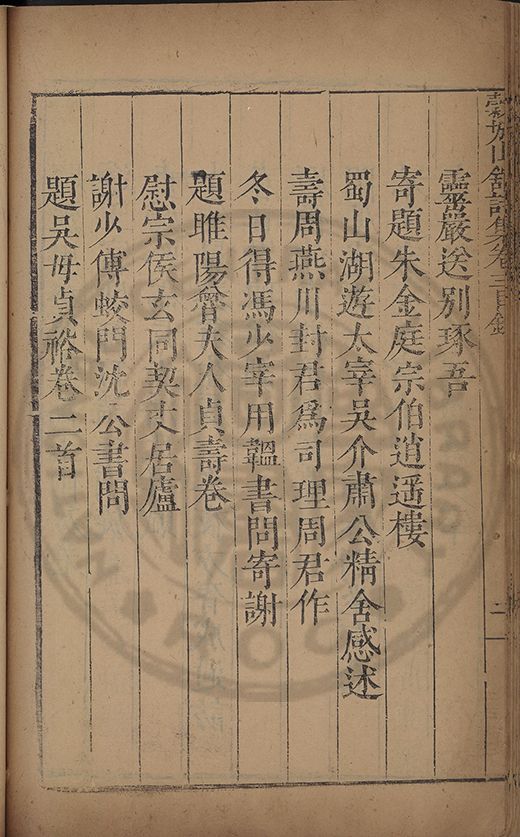 城山館詩集卷三目錄
二
靈巖送別琢吾
寄題朱金庭宗伯逍遥樓
蜀山湖遊太宰吳介肅公精舍感述
壽周燕川封君爲司理周君作
冬日得馮少宰用韞書問寄謝
題睢陽夫人貞壽卷
慰宗侯玄同契丈居廬
謝少傅蛟門沈公書問
題吳母貞裕卷二首